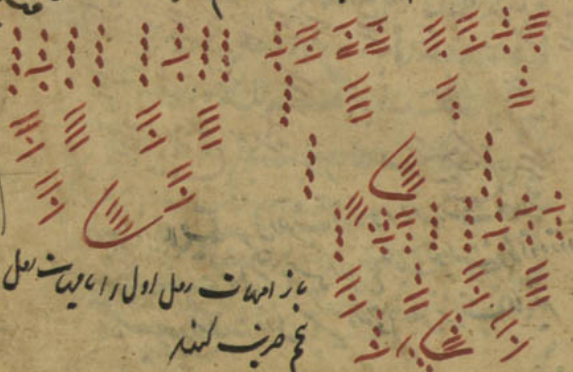 باز امهات رمل اول را با امهات رمل
پنجم ضرب کنند